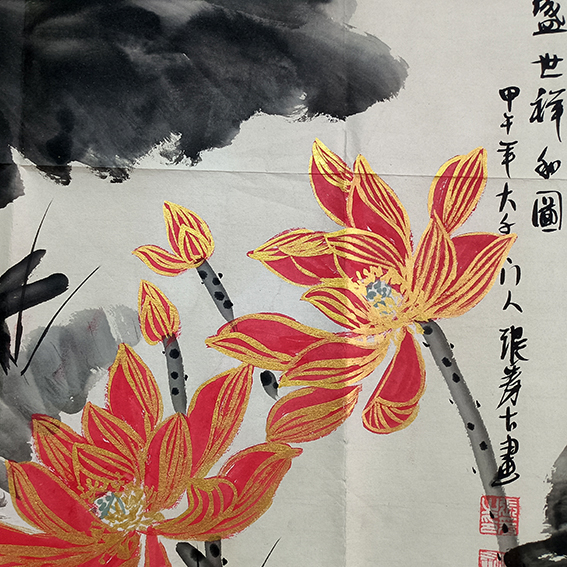 盛世祥和圖
甲午年大千门人張壽古畫